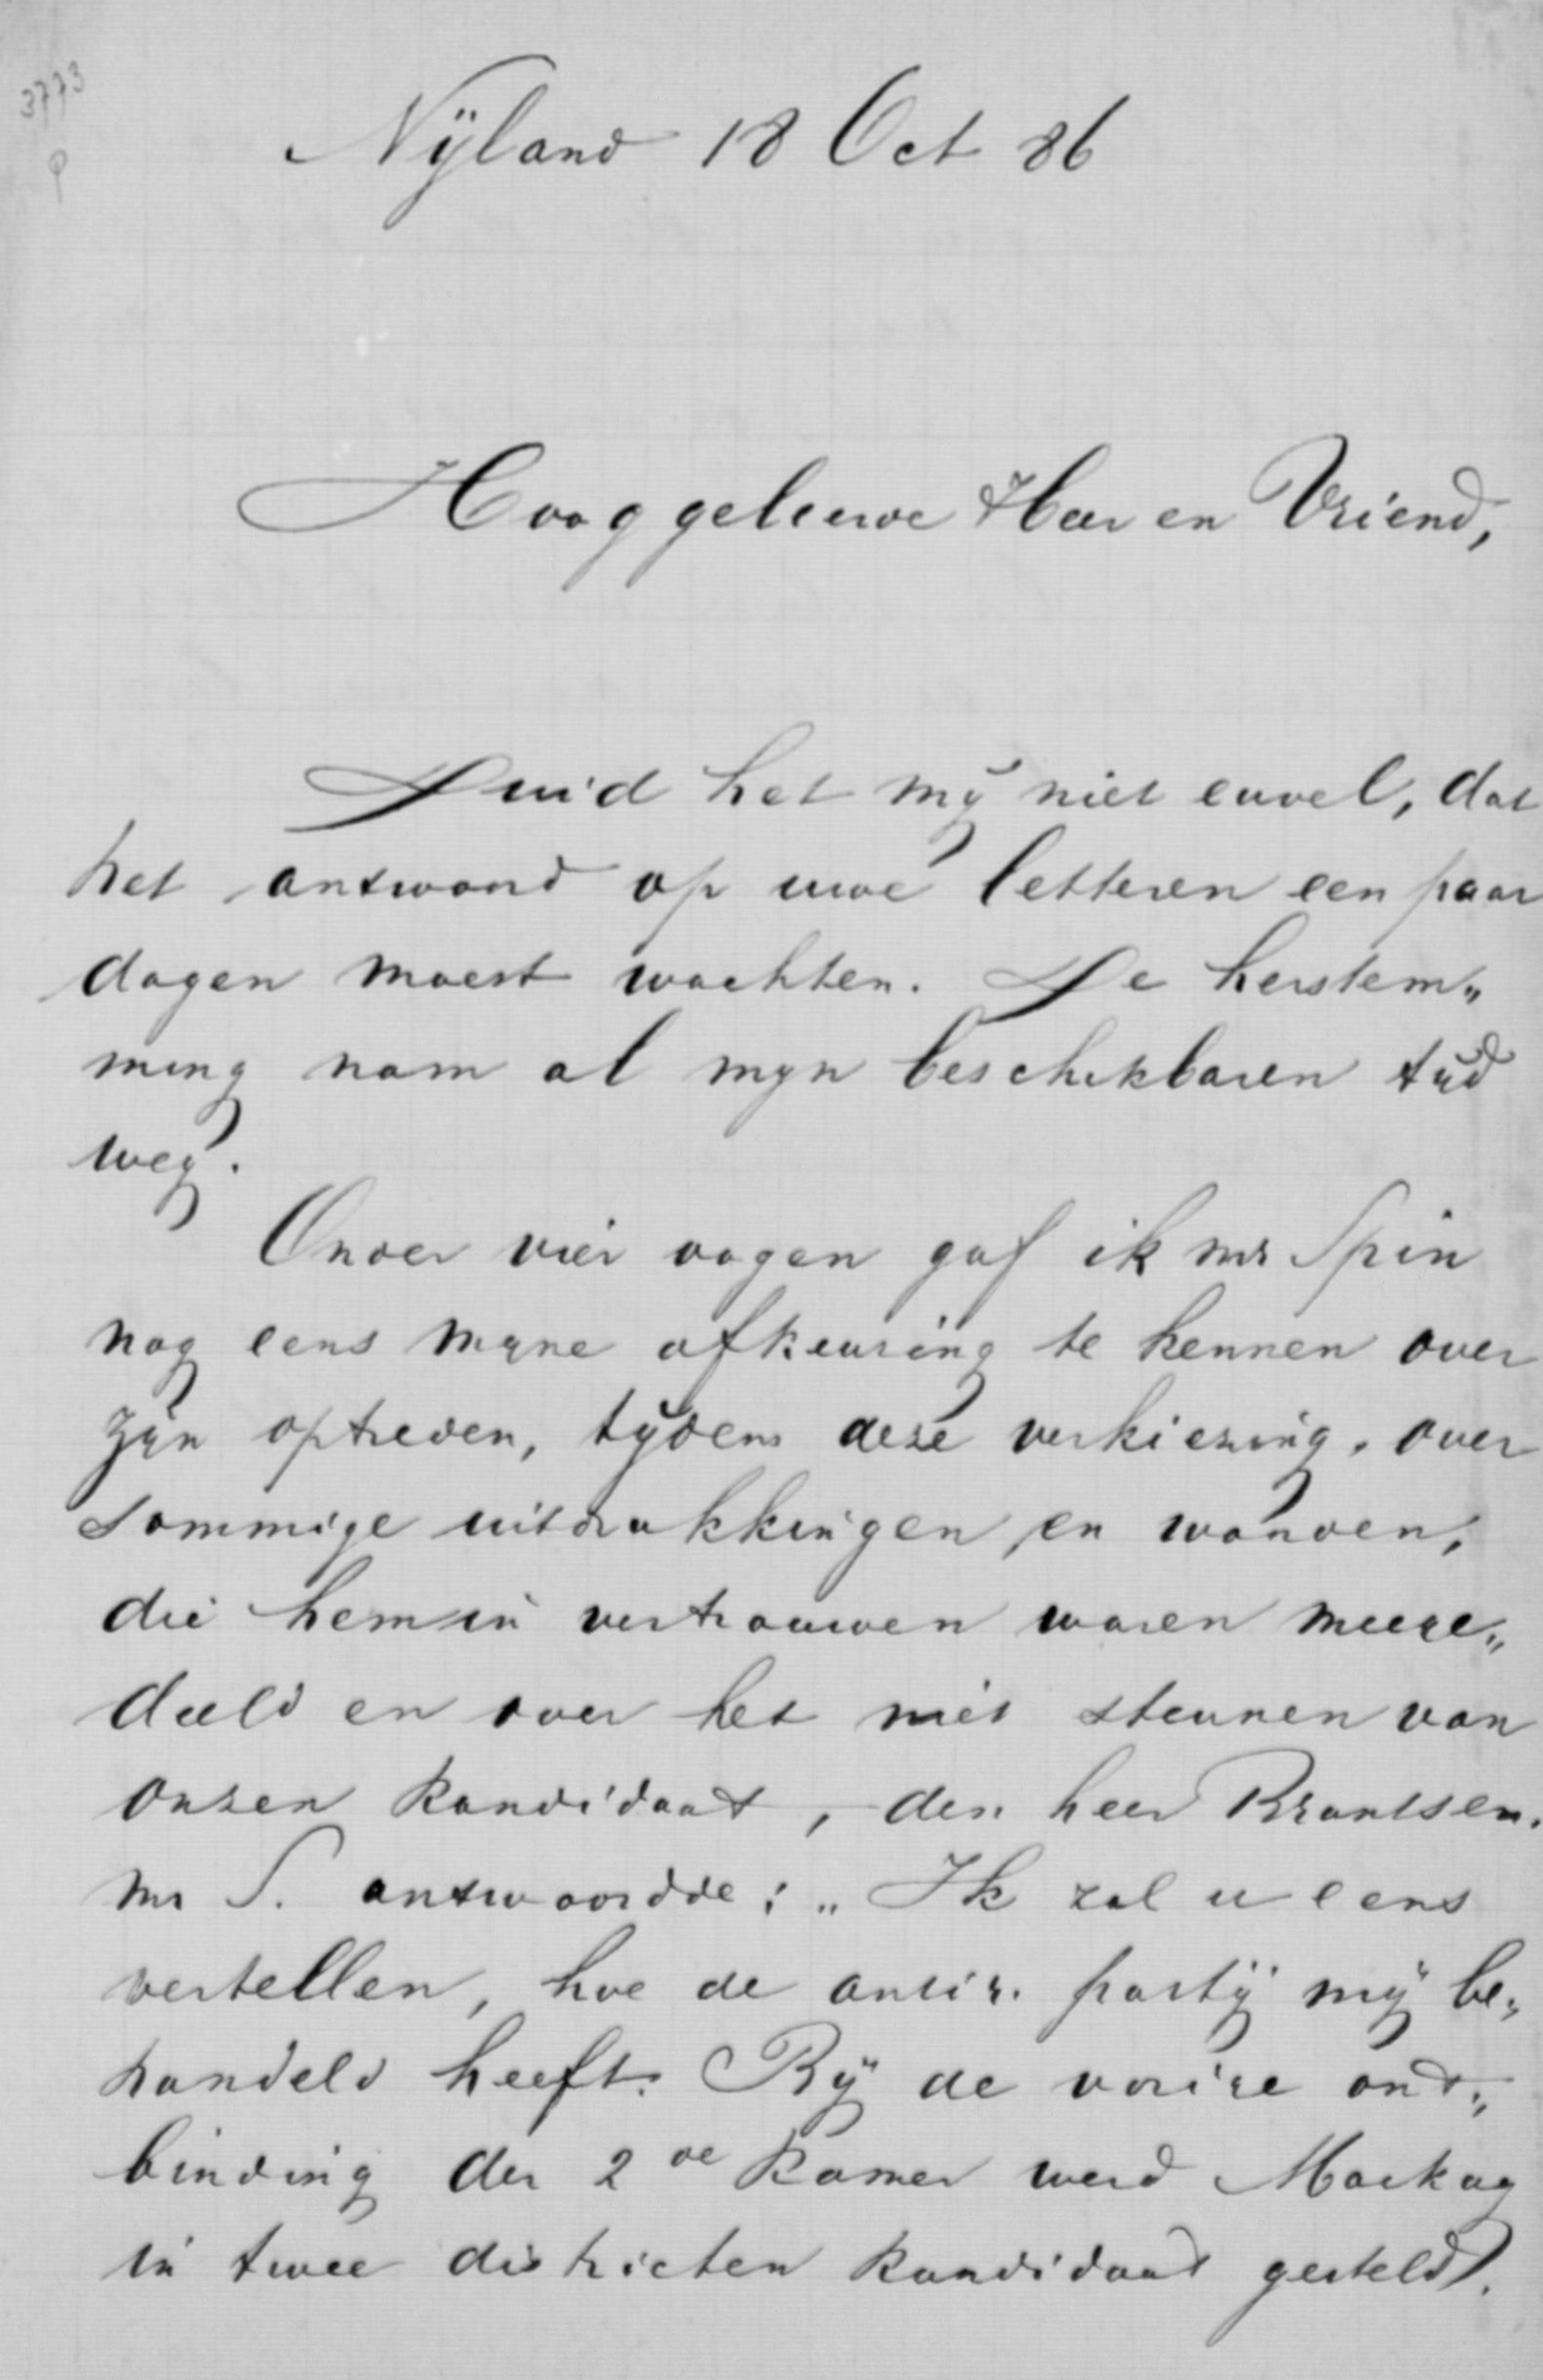 3773
Nÿland 18 Oct 86
Hooggeleerde Heer en Vriend,
Duid het mÿ niet euvel, dat
het antwoord op uwe letteren een paar
dagen moest wachten. De herstem„
ming nam al myn beschikbaren tÿd
weg.
Onder vier oogen gaf ik mr Spin
nog eens myne afkeuring te kennen over
zÿn optreden, tÿdens deze verkiezing, over
sommige uitdrukkingen en woorden,
die hem in vertrouwen waren meege„
deeld en over het niet steunen van
onzen kandidaat, den heer Brantsen.
mr S. antwoordde: „Ik zal u eens
vertellen, hoe de antir. partÿ mÿ be„
handeld heeft. Bÿ de vorige ont„
binding der 2de Kamer werd Mackay
in twee districten kandidaat gesteld.